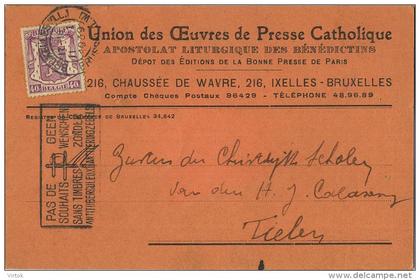 Union des Œuvres de Presse Catholique
APOSTOLAT LITURGIQUE DES BÉNÉDICTINS
DÉPOT DES ÉDITIONS DE LA BONNE PRESSE DE PARIS
216, CHAUSSÉE DE WAVRE, 216, IXELLES-BRUXELLES
Compte Chèques Postaux 96429 - TÉLÉPHONE 48.96.89
DE BRUXELLES 34,642
40 BELGIE 40
PAS DE SOUHAITS SANS TIMBRES ANTITUBERCULEUX
GEEN WENSCHEN ZONDER
Zusters der Christelijke Scholen
van den H. J. Calasanz
Tielen
delcampe.net
Virtok